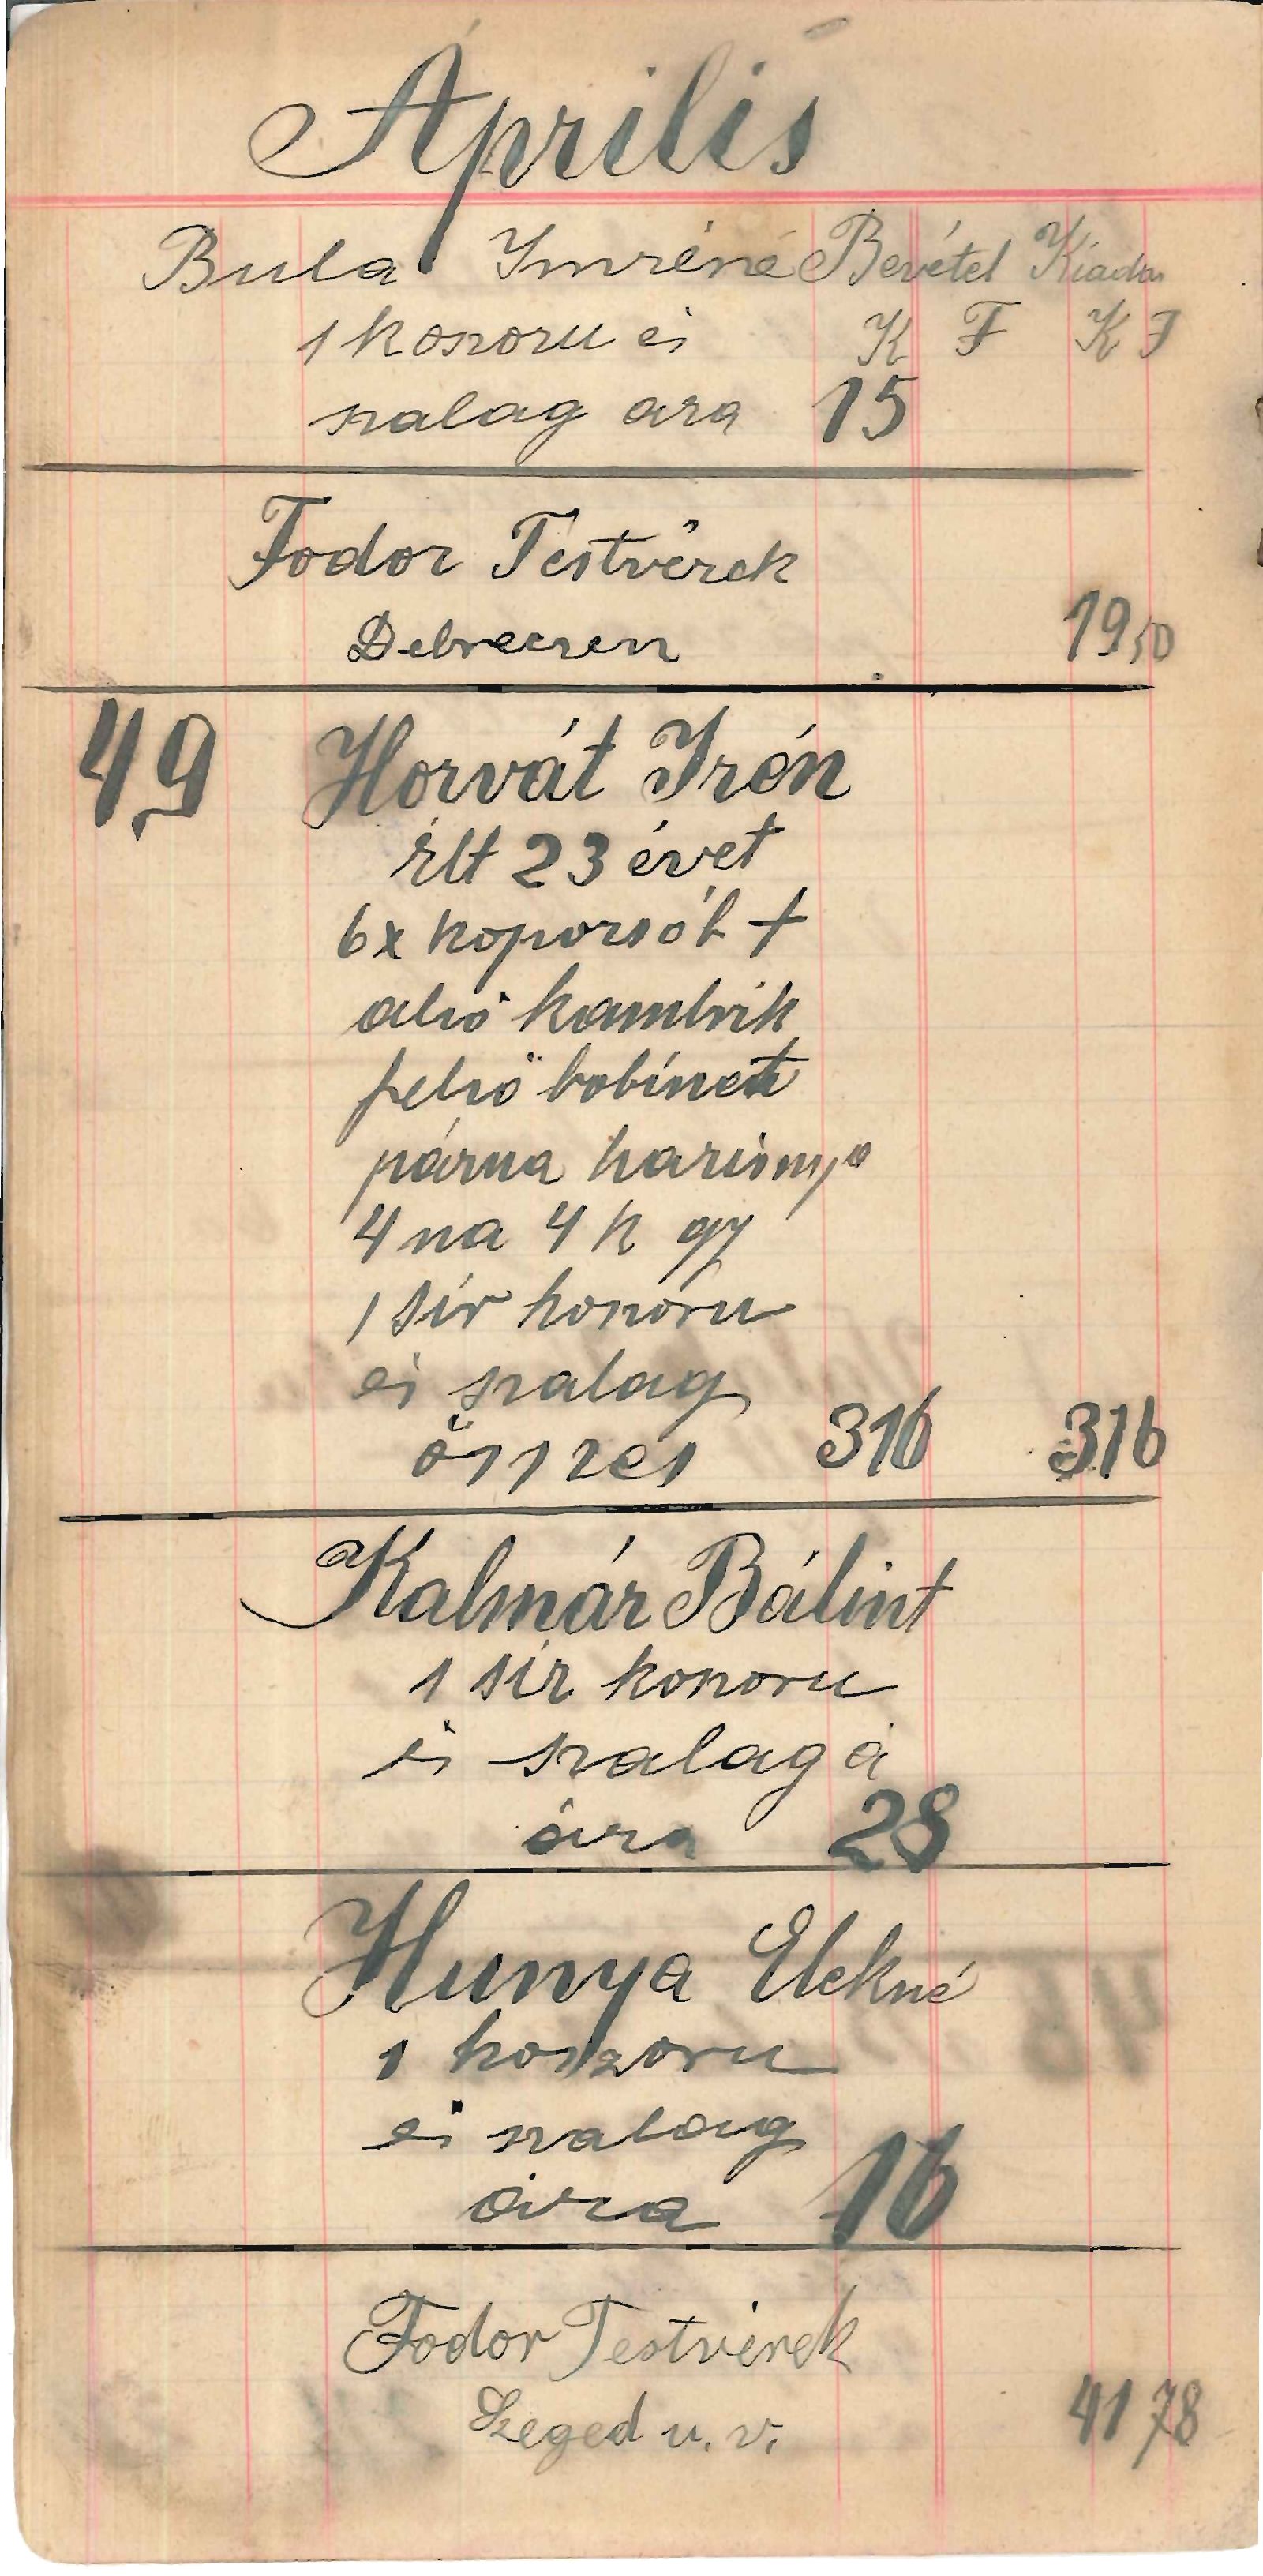 Április
Bula Imréné Bevétel Kiadás
1 koszoru és K F K F
szalag ára 15
Fodor Testvérek
Debreczen 19,50
49 Horvát Irén
élt 23 évet
6x koporsó k +
alsó kambrik
felső bobinett
párna harisnya
4 na 4 k gy
1 sir koszoru
és szalag
összes 316 316
Kalmár Bálint
1 sir koszoru
és szalag á
ára 28
Hunya Elekné
1 koszoru
és szalag
ára 16
Fodor Testvérek
Szeged u. v. 41 78